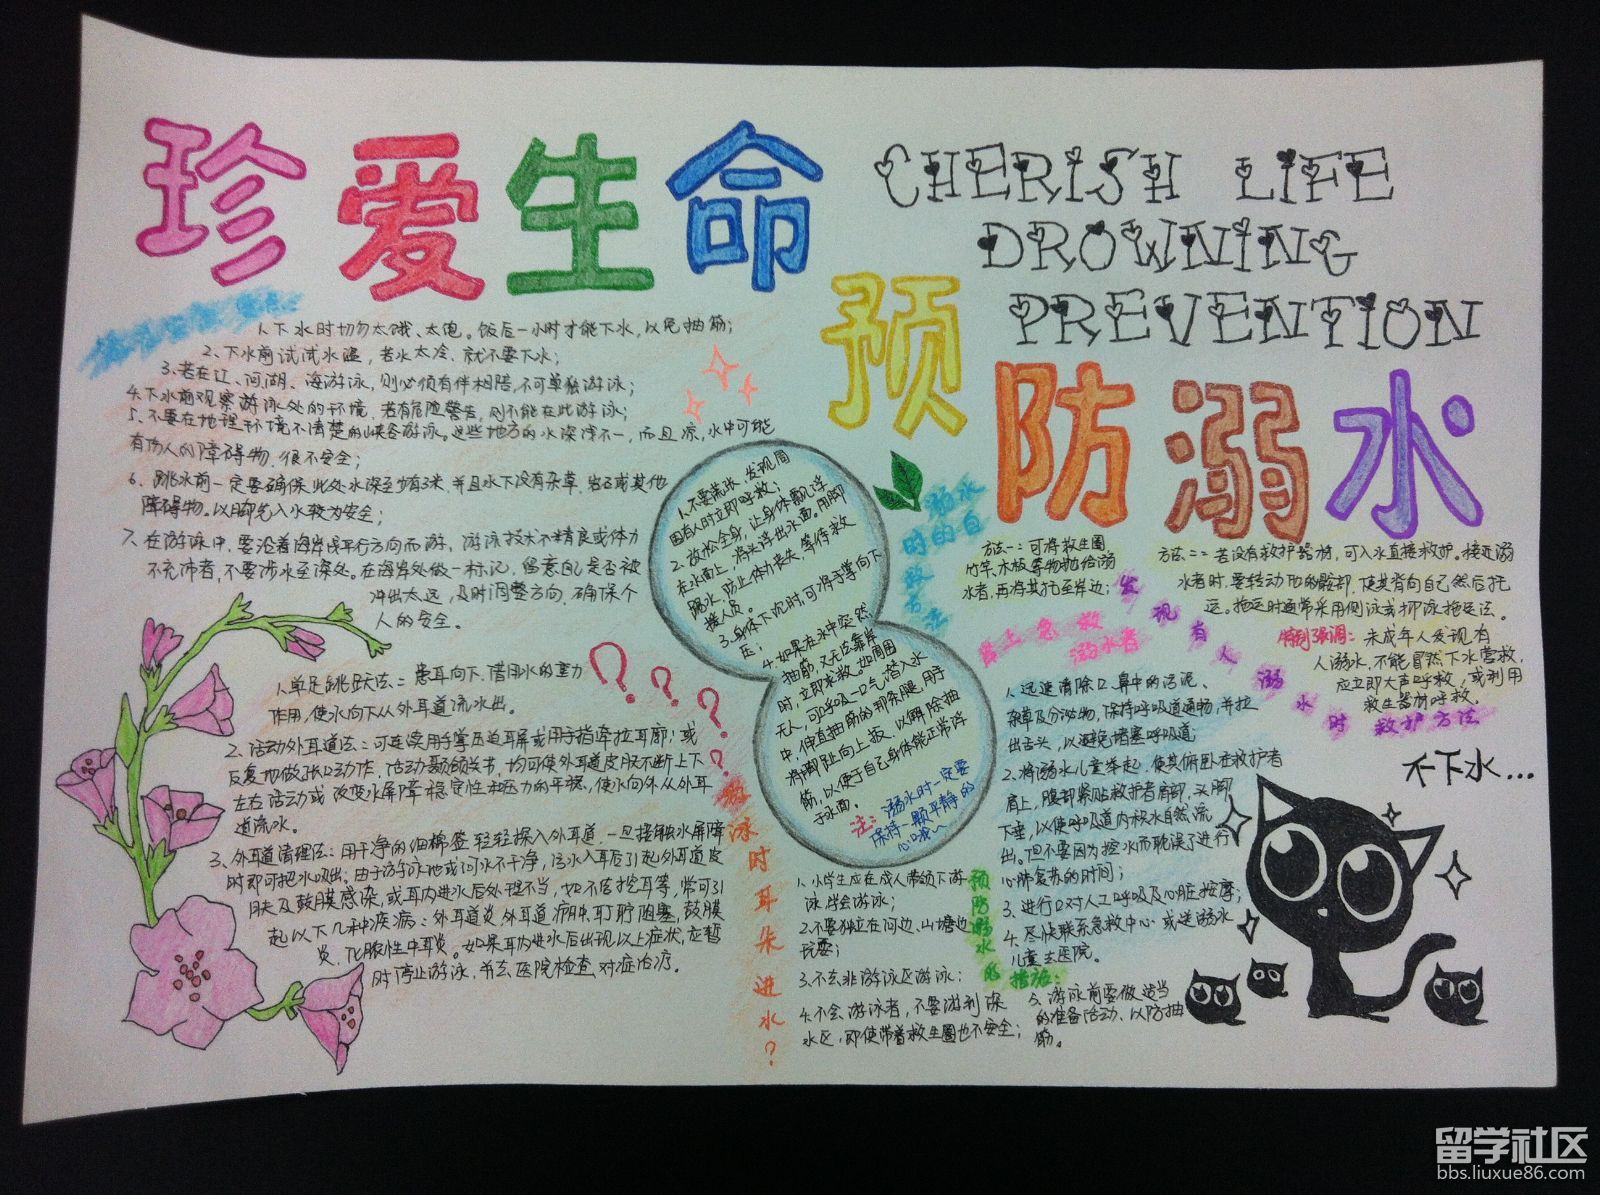 珍爱生命
CHERISH LIFE
DROWNING
PREVENTION
预
防溺水
1、下水时切勿太饿、太饱。饭后一小时才能下水，以免抽筋；
2、下水前试试水温，若水太冷、就不要下水；
3、若在江、河湖、海游泳，则必须有伴相陪，不可单独游泳；
4、下水前观察游泳处的环境，若有危险警告，则不能在此游泳；
5、不要在地理环境不清楚的峡谷游泳。这些地方的水深浅不一，而且凉，水中可能
有伤人的障碍物，很不安全；
6、跳水前一定要确保此处水深至少有3米，并且水下没有杂草、岩石或其他
障碍物。以脚先入水较为安全；
7、在游泳中，要沿着海岸线平行方向而游，游泳技术不精良或体力
不充沛者，不要涉水至深处。在海岸处做一标记，留意自己是否被
冲出太远，及时调整方向，确保个
人的安全。
1、单足跳跃法：患耳向下，借用水的重力
作用，使水向下从外耳道流水出。
2、活动外耳道法：可连续用手掌压迫耳屏或用手指牵拉耳廓；或
反复地做张口动作，活动颞颌关节，均可使外耳道皮肤不断上下
左右活动或改变水屏障稳定性和压力的平衡，使水向外从外耳
道流水。
3、外耳道清理法：用干净的细棉签轻轻探入外耳道，一旦接触水屏障
时即可把水吸出。由于游泳池或河水不干净，污水入耳后引起外耳道皮
肤及鼓膜感染，或耳内进水后处理不当，如不洁挖耳等，常可引
起以下几种疾病：外耳道炎、外耳道疖肿、耵聍阻塞、鼓膜
炎、化脓性中耳炎。如果耳内进水后出现以上症状，应暂
时停止游泳，并去医院检查，对症治疗。
游泳时耳朵进水？
溺水
时的自
救方法
1、不要慌张，发现周
围有人时立即呼救；
2、放松全身，让身体飘浮
在水面上，将头浮出水面，用脚
踢水，防止体力丧失，等待救
援人员。
3、身体下沉时，可将手掌向下
压；
4、如果在水中突然
抽筋，又无法靠岸
时，立即求救。如周围
无人，可深吸一口气潜入水
中，伸直抽筋的那条腿，用手
将脚趾向上扳，以解除抽
筋，以便于自己身体能正常浮
于水面。
注：溺水时一定要
保持一颗平静的
心哦～
发现有人溺水时
救护方法
方法一：可将救生圈
竹竿、木板等物抛给溺
水者，再将其拖至岸边；
方法二：若没有救护器材，可入水直接救护。接近溺
水者时，要转动他的髋部，使其背向自己然后拖
运。拖运时通常采用侧泳或仰泳拖运法。
特别强调：未成年人发现有
人溺水，不能冒然下水营救，
应立即大声呼救，或利用
救生器材呼救。
岸上急救
溺水者
1、迅速清除口、鼻中的污泥、
杂草及分泌物，保持呼吸道通畅，并拉
出舌头，以避免堵塞呼吸道
2、将溺水儿童举起，使其俯卧在救护者
肩上，腹部紧贴救护者肩部，头脚
下垂，以使呼吸道内积水自然流
出。但不要因为控水而耽误了进行
心肺复苏的时间；
3、进行口对人工呼吸及心脏按摩；
4、尽快联系急救中心或送溺水
儿童去医院。
预防溺水的
措施：
1、小学生应在成人带领下游
泳，学会游泳；
2、不要独立在河边、山塘边
玩耍；
3、不去非游泳区游泳；
4、不会游泳者，不要游到深
水区，即使带着救生圈也不安全；
5、游泳前要做适当
的准备活动，以防抽
筋。
不下水...
留学社区
bbs.liuxue86.com